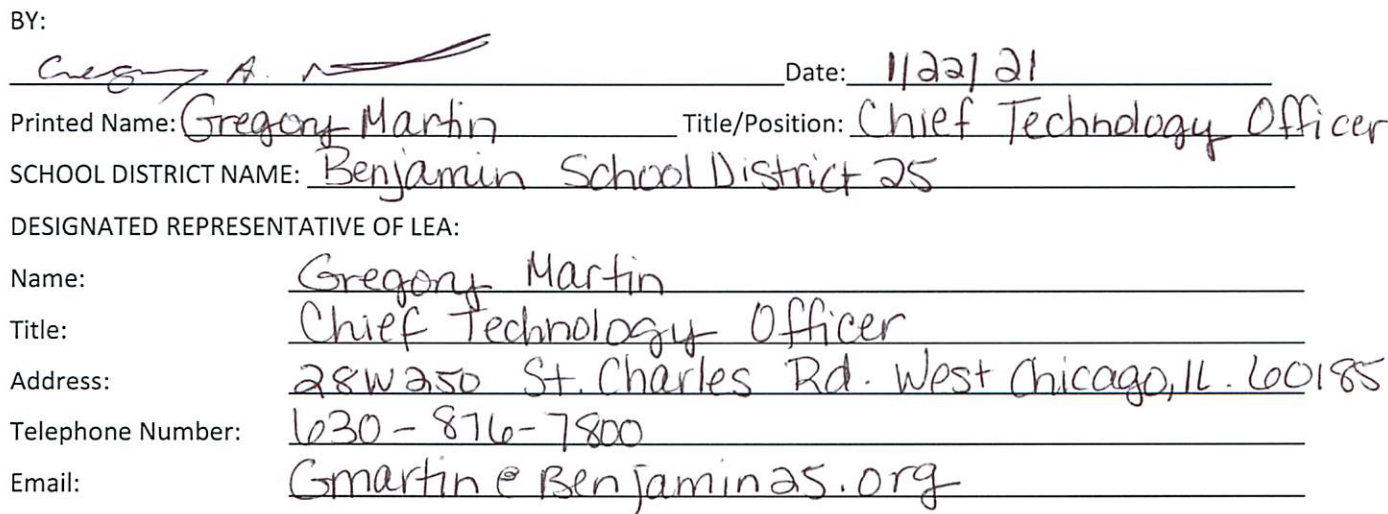 BY:
Gregory A. Date: 1/22/21
Printed Name: Gregory Martin Title/Position: Chief Technology Officer
SCHOOL DISTRICT NAME: Benjamin School District 25
DESIGNATED REPRESENTATIVE OF LEA:
Name: Gregory Martin
Title: Chief Technology Officer
Address: 28W250 St. Charles Rd. West Chicago, IL. 60185
Telephone Number: 630-876-7800
Email: Gmartin@Benjamin25.org